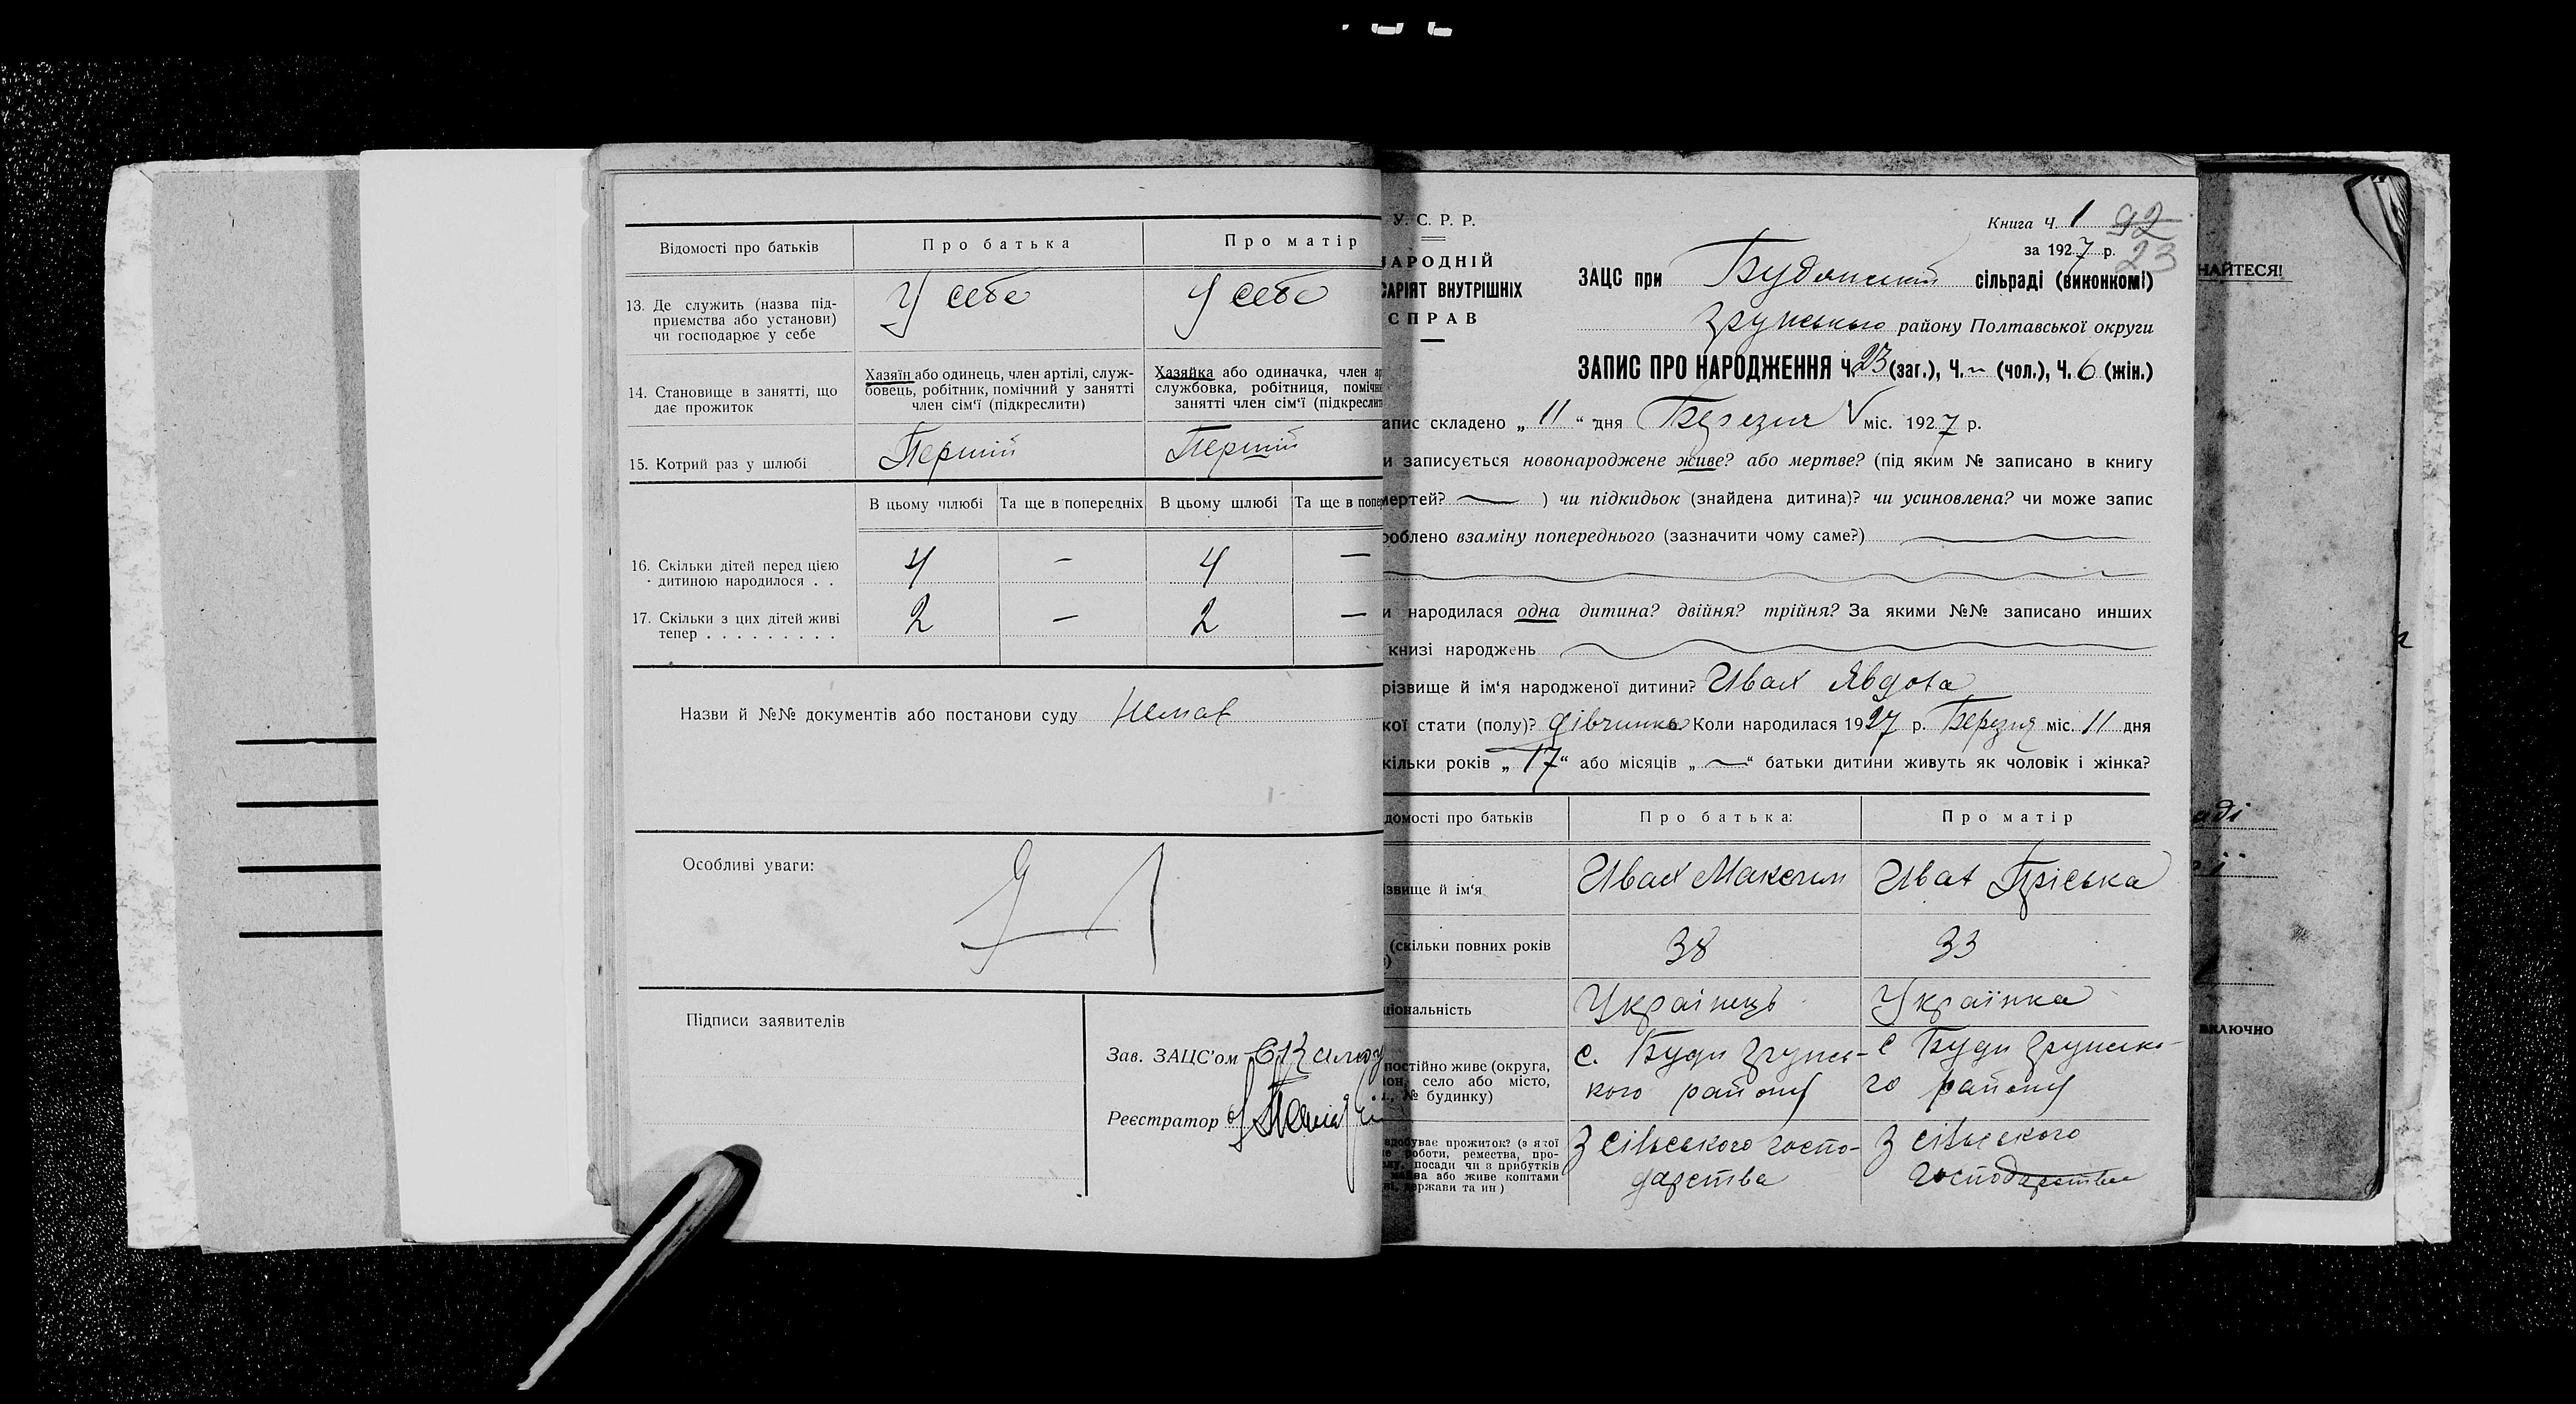 Відомості про батьків Про батька Про матір
13. Де служить (назва під-
приємства або установи)
чи господарює у себе
У себе У себе
14. Становище в занятті, що
дає прожиток
Хазяїн або одинець, член артілі, служ-
бовець, робітник, помічний у занятті
член сім'ї (підкреслити)
Хазяйка або одиначка, член ар
службовка, робітниця, помічн
занятті член сім'ї (підкреслит
15. Котрий раз у шлюбі Перший Перший
В цьому шлюбі Та ще в попередніх В цьому шлюбі Та ще в попе
16. Скільки дітей перед цією
дитиною народилося . .
4 — 4 —
17. Скільки з цих дітей живі
тепер . . . . . . . . .
2 — 2 —
Назви й №№ документів або постанови суду Немає
Особливі уваги:
Підписи заявителів
Зав. ЗАЦС'ом
Реєстратор
У. С. Р. Р.
НАРОДНІЙ
САРІЯТ ВНУТРІШНІХ
СПРАВ
Книга Ч. 1 92
за 1927 р. 23
ЗАЦС при сільраді (виконкомі)
району Полтавської округи
ЗАПИС ПРО НАРОДЖЕННЯ Ч. 23 (заг.), Ч. ~ (чол.), Ч. 6 (жін.)
апис складено „ 11 “ дня Березня міс. 1927 р.
и записується новонароджене живе? або мертве? (під яким № записано в книгу
мертей? ) чи підкидьок (знайдена дитина)? чи усиновлена? чи може запис
роблено взаміну попереднього (зазначити чому саме?)
и народилася одна дитина? двійня? трійня? За якими №№ записано инших
книзі народжень
різвище й ім'я народженої дитини? Ивах Явдоха
кої стати (полу)? дівчинка Коли народилася 1927 р. Березня міс. 11 дня
кільки років „ 17 “ або місяців „ — “ батьки дитини живуть як чоловік і жінка?
домості про батьків Про батька: Про матір
ізвище й ім'я Ивах Максим Ивах Пріська
(скільки повних років
38 33
ціональність Українець Українка
постійно живе (округа,
он, село або місто,
№ будинку)
с. Буди Зрунсь- с Буди Зрунсько
кого району го району
здобуває прожиток? (з якої
роботи, ремества, про-
посади чи з прибутків
або живе коштами
держави та ин)
З сільського госпо- З сільського
дарства господарства
НАЙТЕСЯ!
аді
ії
включно